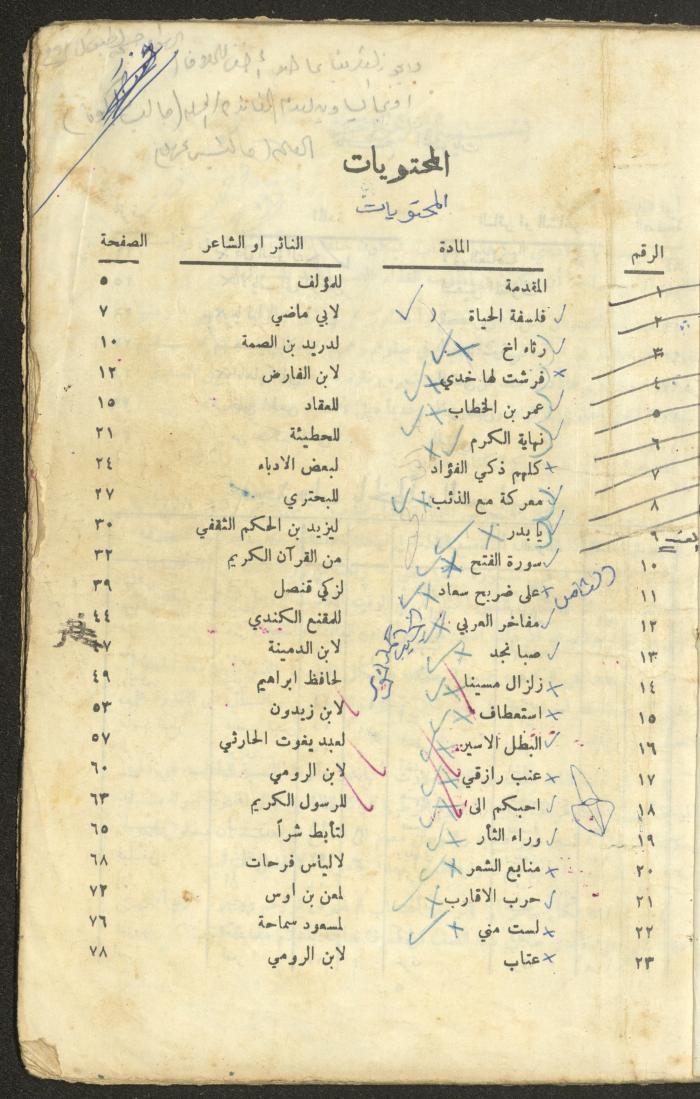 المحتويات
المحتويات
الرقم المادة الناثر او الشاعر الصفحة
١ المقدمة للمؤلف ٥
٢ فلسفة الحياة لابي ماضي ٧
٣ رثاء اخ لدريد بن الصمة ١٠
٤ فرشت لها خدي لابن الفارض ١٢
٥ عمر بن الخطاب للعقاد ١٥
٦ نهاية الكرم للحطيئة ٢١
٧ كلهم ذكي الفؤاد لبعض الادباء ٢٤
٨ معركة مع الذئب للبحتري ٢٧
٩ يا بدر ليزيد بن الحكم الثقفي ٣٠
١٠ سورة الفتح من القرآن الكريم ٣٢
١١ على ضريح سعاد لزكي قنصل ٣٩
١٢ مفاخر العربي للمقنع الكندي ٤٤
١٣ صبا نجد لابن الدمينة ٧
١٤ زلزال مسينا لحافظ ابراهيم ٤٩
١٥ استعطاف لابن زيدون ٥٣
١٦ البطل الاسير لعبد يغوت الحارثي ٥٧
١٧ عنب رازقي لابن الرومي ٦٠
١٨ احبكم الى للرسول الكريم ٦٣
١٩ وراء الثأر لتأبط شراً ٦٥
٢٠ منابع الشعر لالياس فرحات ٦٨
٢١ حرب الاقارب لمعن بن أوس ٧٢
٢٢ لست مني لمسعود سماحة ٧٦
٢٣ عتاب لابن الرومي ٧٨